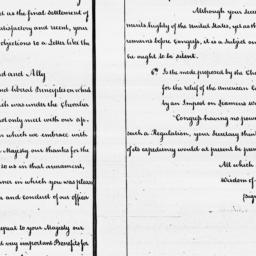 ed as the final settlement of
satisfactory and recent, your
objections to a Letter like the
nd and Ally
and liberal Principles on which
which was under the Chevalier
d only meet with our ap-
n which we embrace with
Majesty our thanks for the
to us in that armament,
anner in which you was pleas
s and conduct of our officer
equal to your Majesty our
d very important Benefits for
Although your Secre
ments highly of the United States, yet as th
remains before Congress, it is a Subject on
he ought to be silent.
6th Is the mode proposed by the Che
for the relief of the american Co
by an Impost on Seamens w
"Congress having no pow
such a Regulation, your Secretary think
of its expediency would at present be prem
All which
Wisdom of